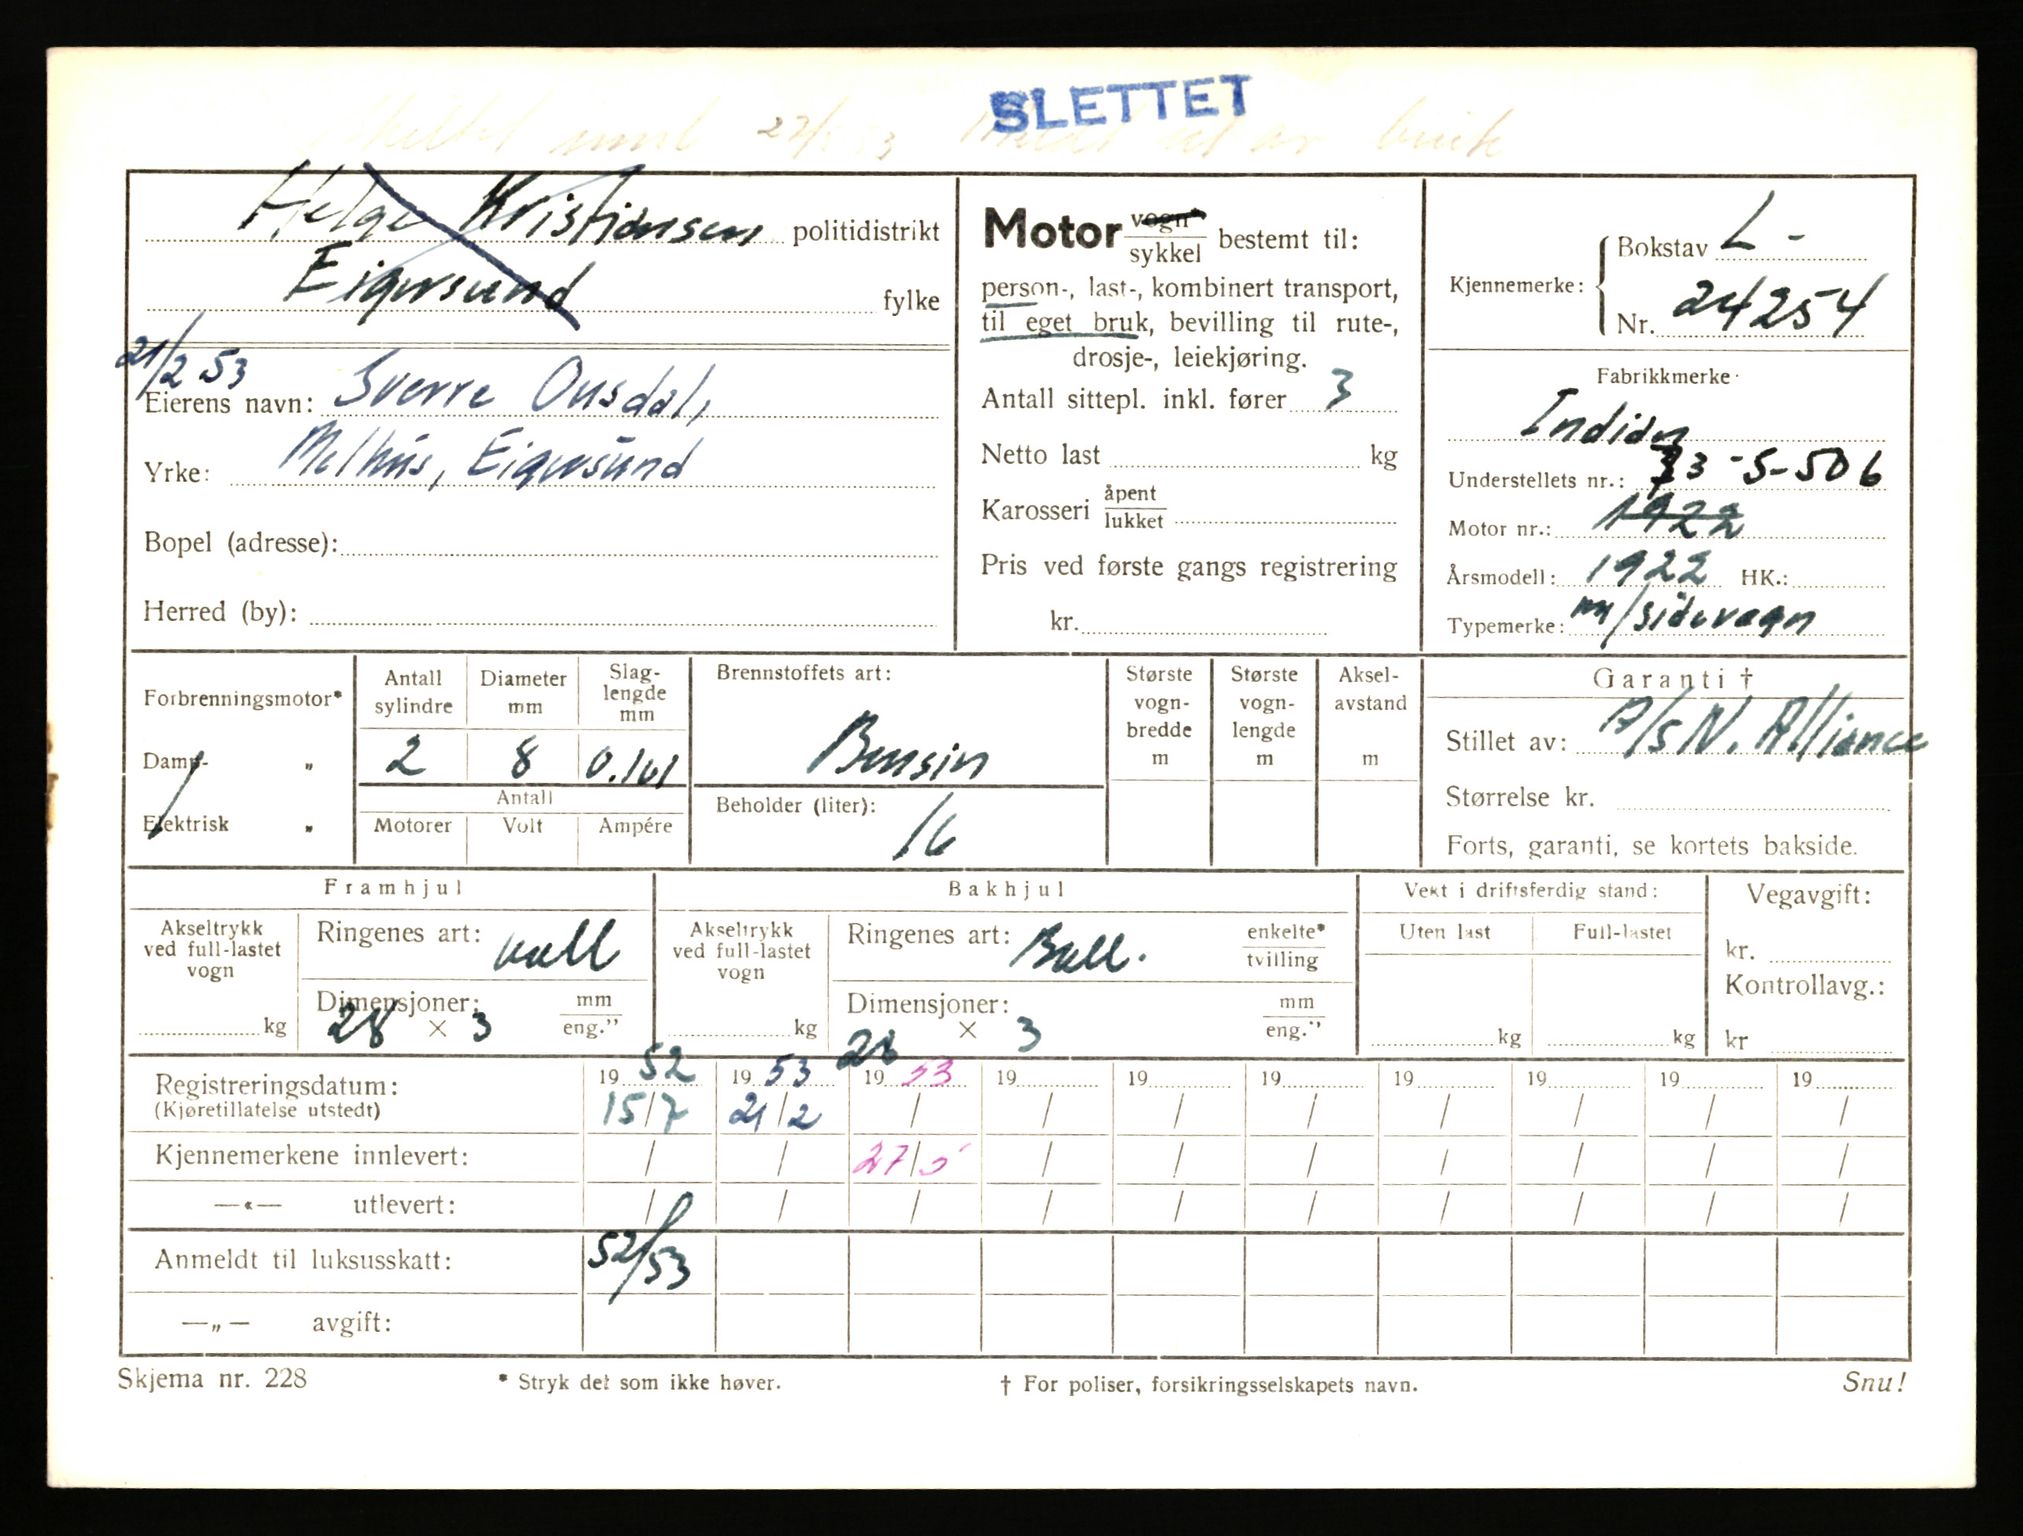 SLETTET
Helge Kristiansen politidistrikt
Eigersund fylke
21/2 53
Eierens navn: Sverre Onsdal,
Yrke: Melhus, Eigersund
Bopel (adresse):
Herred (by):
Motor vogn* sykkel bestemt til:
person-, last-, kombinert transport,
til eget bruk, bevilling til rute-,
drosje-, leiekjøring.
Antall sittepl. inkl. fører 3
Netto last kg
Karosseri åpent lukket
Pris ved første gangs registrering
kr.
Kjennemerke: Bokstav L -
Nr. 24254
Fabrikkmerke
Indian
Understellets nr.: 33-5-506
Motor nr.: 1922
Årsmodell: 1922 HK.:
Typemerke: m/sidevogn
Forbrenningsmotor*
Damp- „
Elektrisk „
Antall sylindre Diameter mm Slag-lengde mm
2 8 0.101
Antall
Motorer Volt Ampére
Brennstoffets art:
Bensin
Beholder (liter):
16
Største vogn-bredde m
Største vogn-lengde m
Aksel-avstand m
Garanti †
Stillet av: A/S N. Alliance
Størrelse kr.
Forts, garanti, se kortets bakside.
Framhjul
Akseltrykk ved full-lastet vogn
kg
Ringenes art: ball
Dimensjoner: mm eng.”
28 × 3
Bakhjul
Akseltrykk ved full-lastet vogn
kg
Ringenes art: Ball. enkelte* tvilling
Dimensjoner: mm eng.”
28 × 3
Vekt i driftsferdig stand:
Uten last Full-lastet
kg kg
Vegavgift:
kr.
Kontrollavg.:
kr
Registreringsdatum: 19 52 19 53 19 53 19 19 19 19 19 19 19
(Kjøretillatelse utstedt) 15/7 21/2 / / / / / / / /
Kjennemerkene innlevert: / / 27/5 / / / / / / /
—«— utlevert: / / / / / / / / / /
Anmeldt til luksusskatt: 52/53
—„— avgift:
Skjema nr. 228 * Stryk det som ikke høver. † For poliser, forsikringsselskapets navn. Snu!